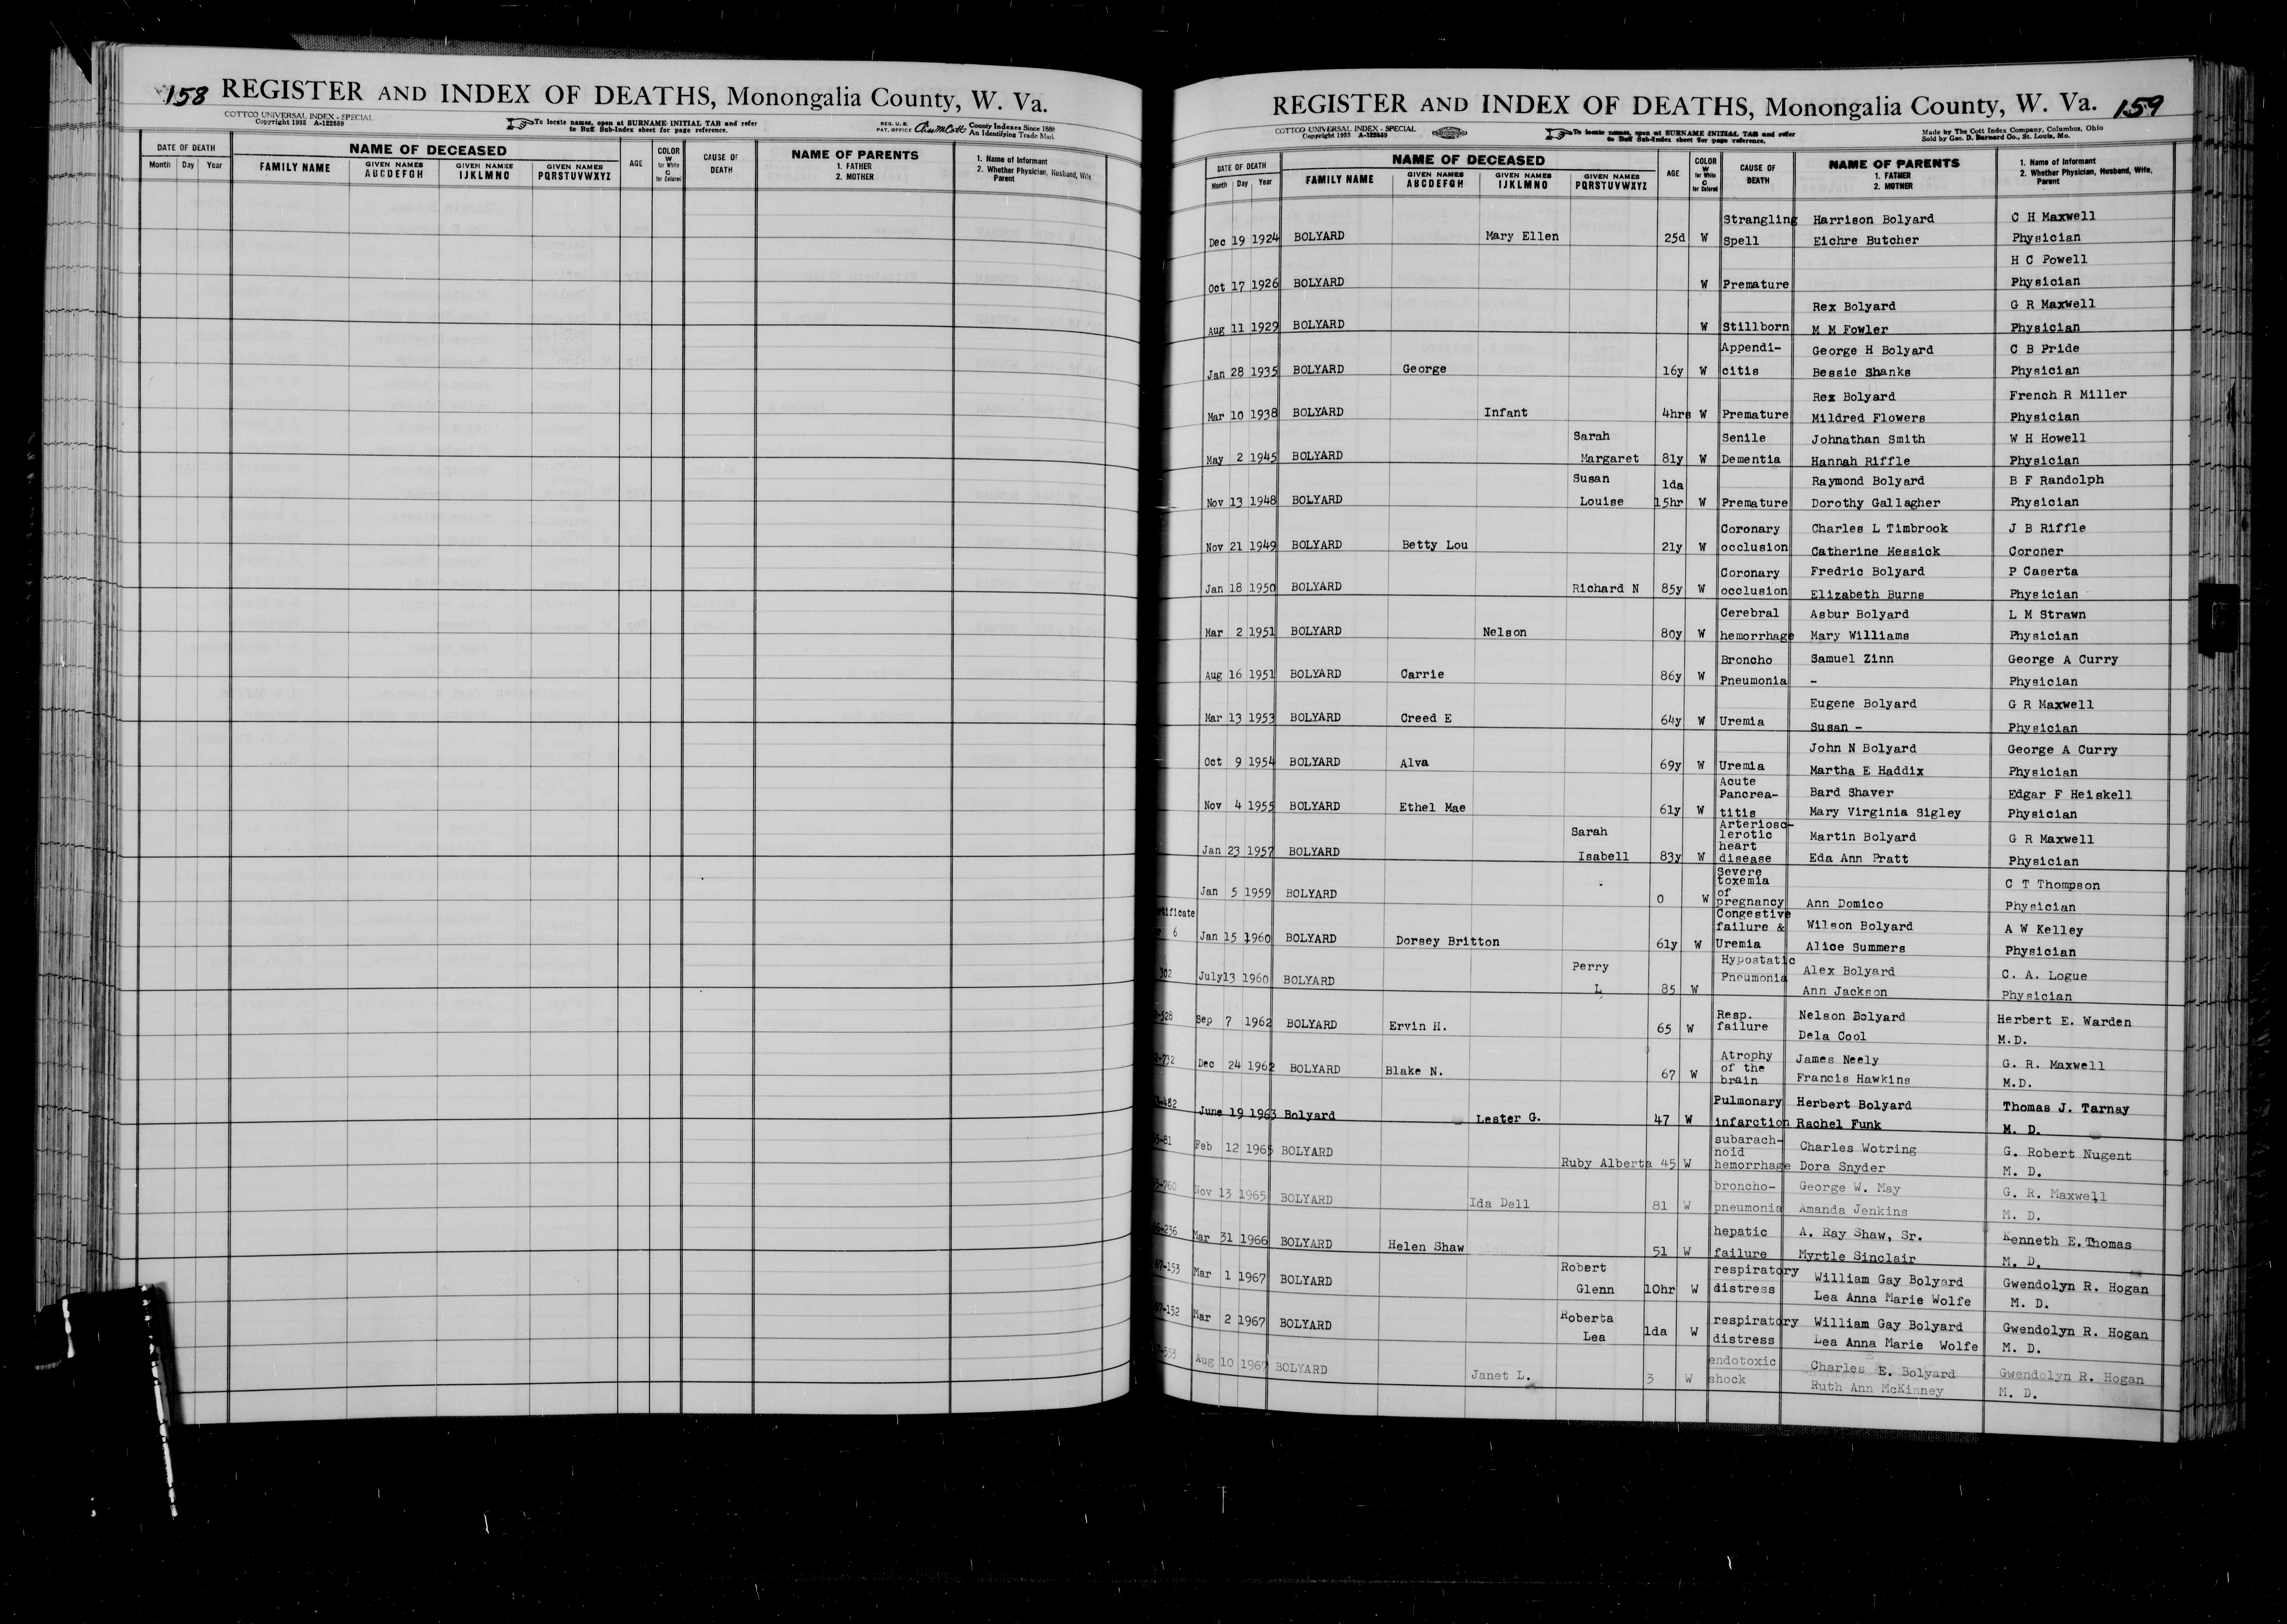 158 REGISTER AND INDEX OF DEATHS, Monongalia County, W. Va.
COTTCO UNIVERSAL INDEX - SPECIAL
Copyright 1933 A-122559
To locate names, open at SURNAME INITIAL TAB and refer
to Buff Sub-Index sheet for page reference.
REG. U. S.
PAT. OFFICE
County Indexes Since 1888
An Identifying Trade Mark
DATE OF DEATH
Month Day Year
NAME OF DECEASED
FAMILY NAME
GIVEN NAMES
ABCDEFGH
GIVEN NAMES
IJKLMNO
GIVEN NAMES
PQRSTUVWXYZ
AGE
COLOR
W
for White
C
for Colored
CAUSE OF
DEATH
NAME OF PARENTS
1. FATHER
2. MOTHER
1. Name of Informant
2. Whether Physician, Husband, Wife,
Parent
REGISTER AND INDEX OF DEATHS, Monongalia County, W. Va. 159
COTTCO UNIVERSAL INDEX - SPECIAL
Copyright 1933 A-122559
To locate names, open at SURNAME INITIAL TAB and refer
to Buff Sub-Index sheet for page reference.
Made by The Cott Index Company, Columbus, Ohio
Sold by Geo. D. Barnard Co., St. Louis, Mo.
DATE OF DEATH
Month Day Year
NAME OF DECEASED
FAMILY NAME
GIVEN NAMES
ABCDEFGH
GIVEN NAMES
IJKLMNO
GIVEN NAMES
PQRSTUVWXYZ
AGE
COLOR
W
for White
C
for Colored
CAUSE OF
DEATH
NAME OF PARENTS
1. FATHER
2. MOTHER
1. Name of Informant
2. Whether Physician, Husband, Wife,
Parent
Strangling Harrison Bolyard C H Maxwell
Dec 19 1924 BOLYARD Mary Ellen 25d W Spell Eichre Butcher Physician
H C Powell
Oct 17 1926 BOLYARD W Premature Physician
Rex Bolyard G R Maxwell
Aug 11 1929 BOLYARD W Stillborn M M Fowler Physician
Appendi- George H Bolyard C B Pride
Jan 28 1935 BOLYARD George 16y W citis Bessie Shanks Physician
Rex Bolyard French R Miller
Mar 10 1938 BOLYARD Infant 4hrs W Premature Mildred Flowers Physician
Sarah Senile Johnathan Smith W H Howell
May 2 1945 BOLYARD Margaret 81y W Dementia Hannah Riffle Physician
Susan 1da Raymond Bolyard B F Randolph
Nov 13 1948 BOLYARD Louise 15hr W Premature Dorothy Gallagher Physician
Coronary Charles L Timbrook J B Riffle
Nov 21 1949 BOLYARD Betty Lou 21y W occlusion Catherine Messick Coroner
Coronary Fredric Bolyard P Caserta
Jan 18 1950 BOLYARD Richard N 85y W occlusion Elizabeth Burns Physician
Cerebral Asbur Bolyard L M Strawn
Mar 2 1951 BOLYARD Nelson 80y W hemorrhage Mary Williams Physician
Broncho Samuel Zinn George A Curry
Aug 16 1951 BOLYARD Carrie 86y W Pneumonia - Physician
Eugene Bolyard G R Maxwell
Mar 13 1953 BOLYARD Creed E 64y W Uremia Susan - Physician
John N Bolyard George A Curry
Oct 9 1954 BOLYARD Alva 69y W Uremia Martha E Haddix Physician
Acute
Pancrea- Bard Shaver Edgar F Heiskell
Nov 4 1955 BOLYARD Ethel Mae 61y W titis Mary Virginia Sigley Physician
Arteriosc-
Sarah lerotic Martin Bolyard G R Maxwell
heart
Jan 23 1957 BOLYARD Isabell 83y W disease Eda Ann Pratt Physician
Severe
toxemia C T Thompson
of
Jan 5 1959 BOLYARD 0 W pregnancy Ann Domico Physician
Congestive
failure & Wilson Bolyard A W Kelley
6 Jan 15 1960 BOLYARD Dorsey Britton 61y W Uremia Alice Summers Physician
Perry Hypostatic Alex Bolyard C. A. Logue
302 July13 1960 BOLYARD L 85 W Pneumonia Ann Jackson Physician
Resp. Nelson Bolyard Herbert E. Warden
-528 Sep 7 1962 BOLYARD Ervin H. 65 W failure Dela Cool M.D.
Atrophy James Neely G. R. Maxwell
of the
2-732 Dec 24 1962 BOLYARD Blake N. 67 W brain Francis Hawkins M.D.
Pulmonary Herbert Bolyard Thomas J. Tarnay
3-482 June 19 1963 Bolyard Lester G. 47 W infarction Rachel Funk M. D.
subarach- Charles Wotring G. Robert Nugent
noid
5-81 Feb 12 1965 BOLYARD Ruby Alberta 45 W hemorrhage Dora Snyder M. D.
broncho- George W. May G. R. Maxwell
-760 Nov 13 1965 BOLYARD Ida Dell 81 W pneumonia Amanda Jenkins M. D.
hepatic A. Ray Shaw, Sr. Kenneth E. Thomas
66-236 Mar 31 1966 BOLYARD Helen Shaw 51 W failure Myrtle Sinclair M. D.
Robert respiratory William Gay Bolyard Gwendolyn R. Hogan
67-153 Mar 1 1967 BOLYARD Glenn 10hr W distress Lea Anna Marie Wolfe M. D.
Roberta respiratory William Gay Bolyard Gwendolyn R. Hogan
67-152 Mar 2 1967 BOLYARD Lea 1da W distress Lea Anna Marie Wolfe M. D.
endotoxic Charles E. Bolyard Gwendolyn R. Hogan
-553 Aug 10 1967 BOLYARD Janet L. 3 W shock Ruth Ann McKinney M. D.